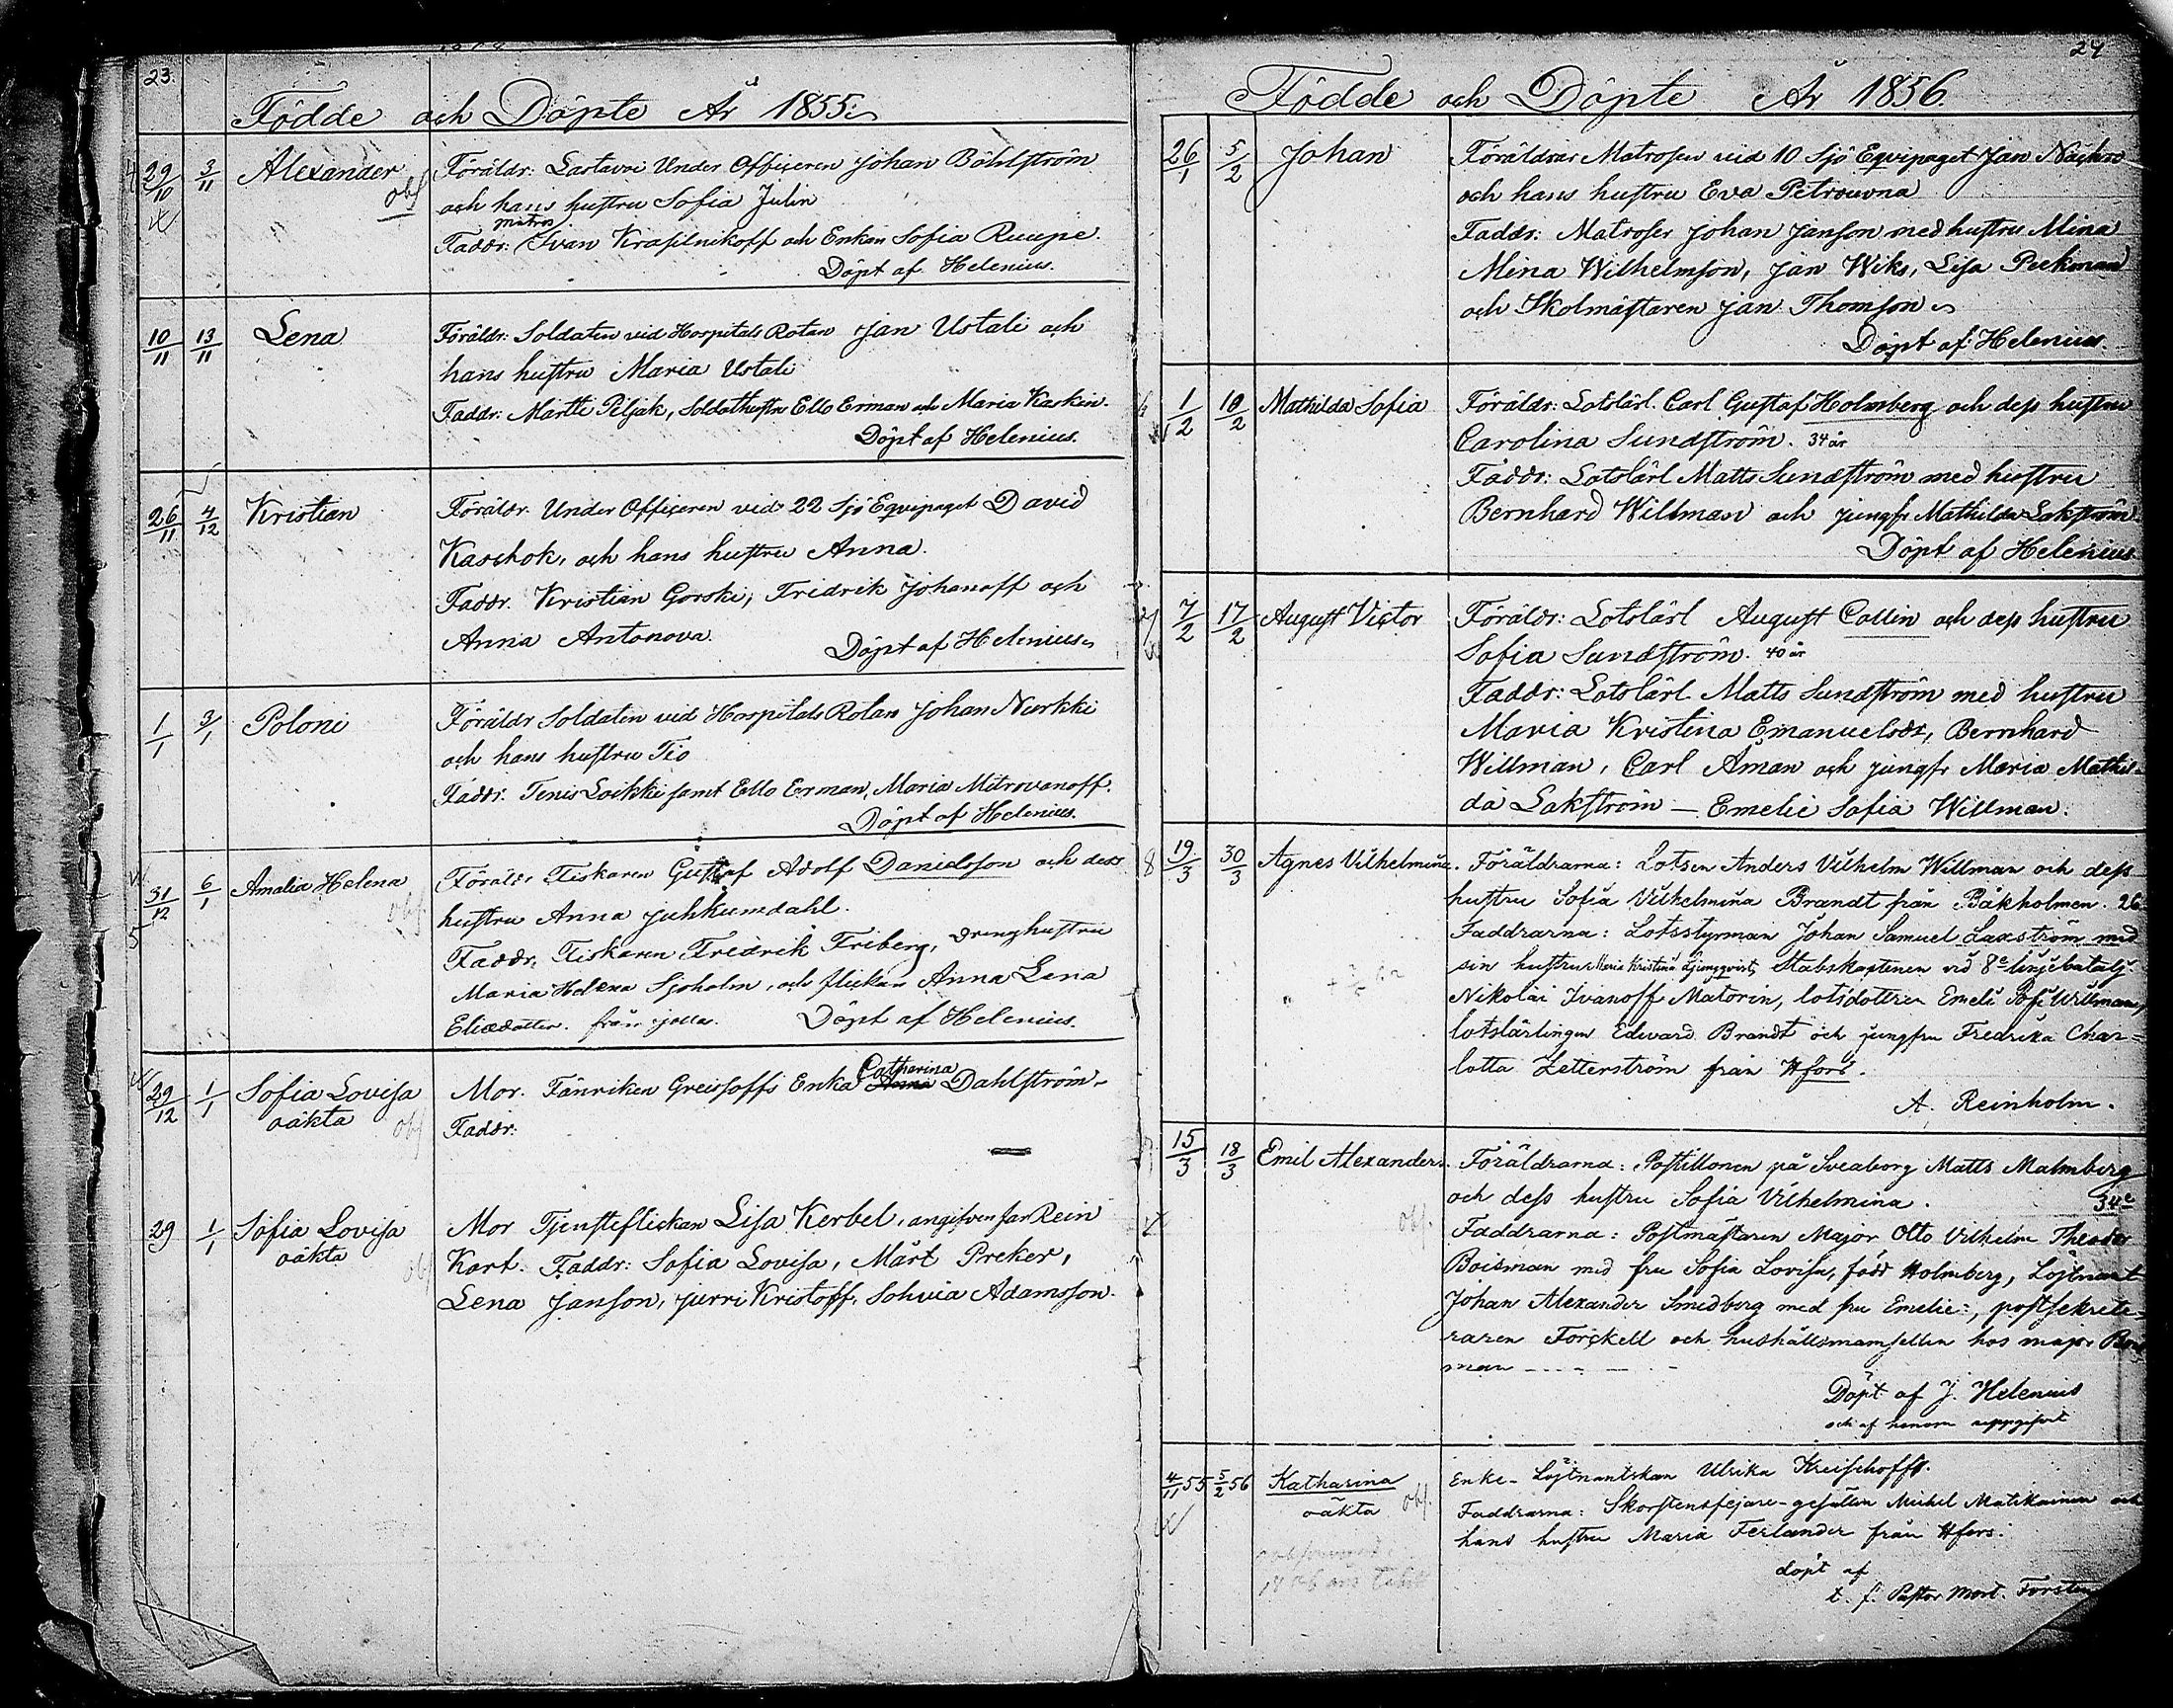 23.
Födde och Döpte År 1855.
4 29/10 3/11 Alexander obs
Föräldr: Lastavoi Under Officeren Johan Böhlström
och hans hustru Sofia Julin
matros
Faddr: Ivan Krasilnikoff och Enkan Sofia Ruupe.
Döpt af Helenius.
10/11 13/11 Lena
Föräldr: Soldaten vid Hospitals Rotan Jan Ustali och
hans hustru Maria Ustali
Faddr: Martti Peljak, Soldathustr Ello Erman och Maria Kaskin.
Döpt af Helenius.
26/11 4/12 Kristian
Föräldr. Under Officeren vid 22 Sjö Eqvipaget David
Kaschok, och hans hustru Anna.
Faddr. Kristian Gorski, Fridrik Johanoff och
Anna Antonova.
Döpt af Helenius
1/1 3/1 Poloni
Föräldr Soldaten vid Hospitals Rotan Johan Nurkki
och hans hustru Tio
Faddr. Tenis Loikki samt Ello Erman, Maria Mitrovanoff.
Döpt af Helenius.
31/12 6/1 Amalia Helena obs
5
Föräldr Fiskaren Gustaf Adolf Danielsson och dess
hustru Anna Juhkumdahl.
Faddr. Fiskaren Fredrik Friberg, Drenghustru
Maria Helena Sjöholm, och flickan Anna Lena
Eliædotter. från
Döpt af Helenius.
29/12 1/1 Sofia Lovisa
oäkta obs
Catharina
Mor. Fänriken Greissoffs Enka Anna Dahlström
Faddr:
29 1/1 Sofia Lovisa
oäkta obs
Mor Tjensteflickan Lisa Kerbel, angifven far Rein
Kart. Faddr: Sofia Lovisa, Märt Preker,
Lena Janson, Jurri Kristoff, Sohvia Adamsson.
24
Födde och Döpte År 1856.
26/1 5/2 Johan
Föräldrar Matrosen vid 10 Sjö Eqvipaget Jan
och hans hustru Eva Petrouvna
Faddr: Matroser Johan Janson med hustru Mina
Mina Wilhelmson, Jan Wiks, Lisa Peekman
och Skolmästaren Jan Thomson
Döpt af Helenius.
1/2 10/2 Mathilda Sofia
Föräldr: Lotslärl. Carl Gustaf Holmberg och dess hustru
Carolina Sundström. 34 år
Faddr: Lotslärl Matts Sundström med hustru
Bernhard Willman och jungfr Mathilda Lakström
Döpt af Helenius
7/2 17/2 August Victor
Föräldr: Lotslärl August Collin och dess hustru
Sofia Sundström. 40 år
Faddr: Lotslärl Matts Sundström med hustru
Maria Kristina Emanuelsdr, Bernhard
Willman, Carl Åman och jungfr Maria Mathil-
da Lakström — Emelie Sofia Willman.
8 19/3 30/3 Agnes Vilhelmina.
Föräldrarna: Lotsen Anders Vilhelm Willman och dess
hustru Sofia Vilhelmina Brandt från Båkholmen. 26
Faddrarna: Lotsstyrman Johan Samuel Laxström med
sin hustru Maria Kristina Ljungqvist, Stabskaptenen vid 8e linjebatalj.
Nikolai Ivanoff Matorin, lotsdottren Emeli Sofi Willman,
lotslärlingen Edward Brandt och jungfru Fredrika Char=
lotta Zetterström från Hfors.
A. Reinholm.
15/3 18/3 Emil Alexander. obs.
Föräldrarna: Postillonen på Sveaborg Matts Malmberg
och dess hustru Sofia Vilhelmina. 34
Faddrarna: Postmästaren Major Otto Vilhelm Theodor
Boisman med fru Sofia Lovisa, född Holmberg, Löjtnant
Johan Alexander Smedberg med fru Emelie, postsekrete=
raren Forskell och hushållsmamsellen hos major Bois
man
Döpt af J. Helenius
och af honom uppgifvet
4/11 55 5/2 56 Katharina
oäkta obs.
Enke-Löjtnantskan Ulrika Kreischoff.
Faddrarna: Skorstensfejare-gesällen Michel Matikainen och
hans hustru Maria Ferlander från Hfors.
döpt af
t. f. Pastor Mort.